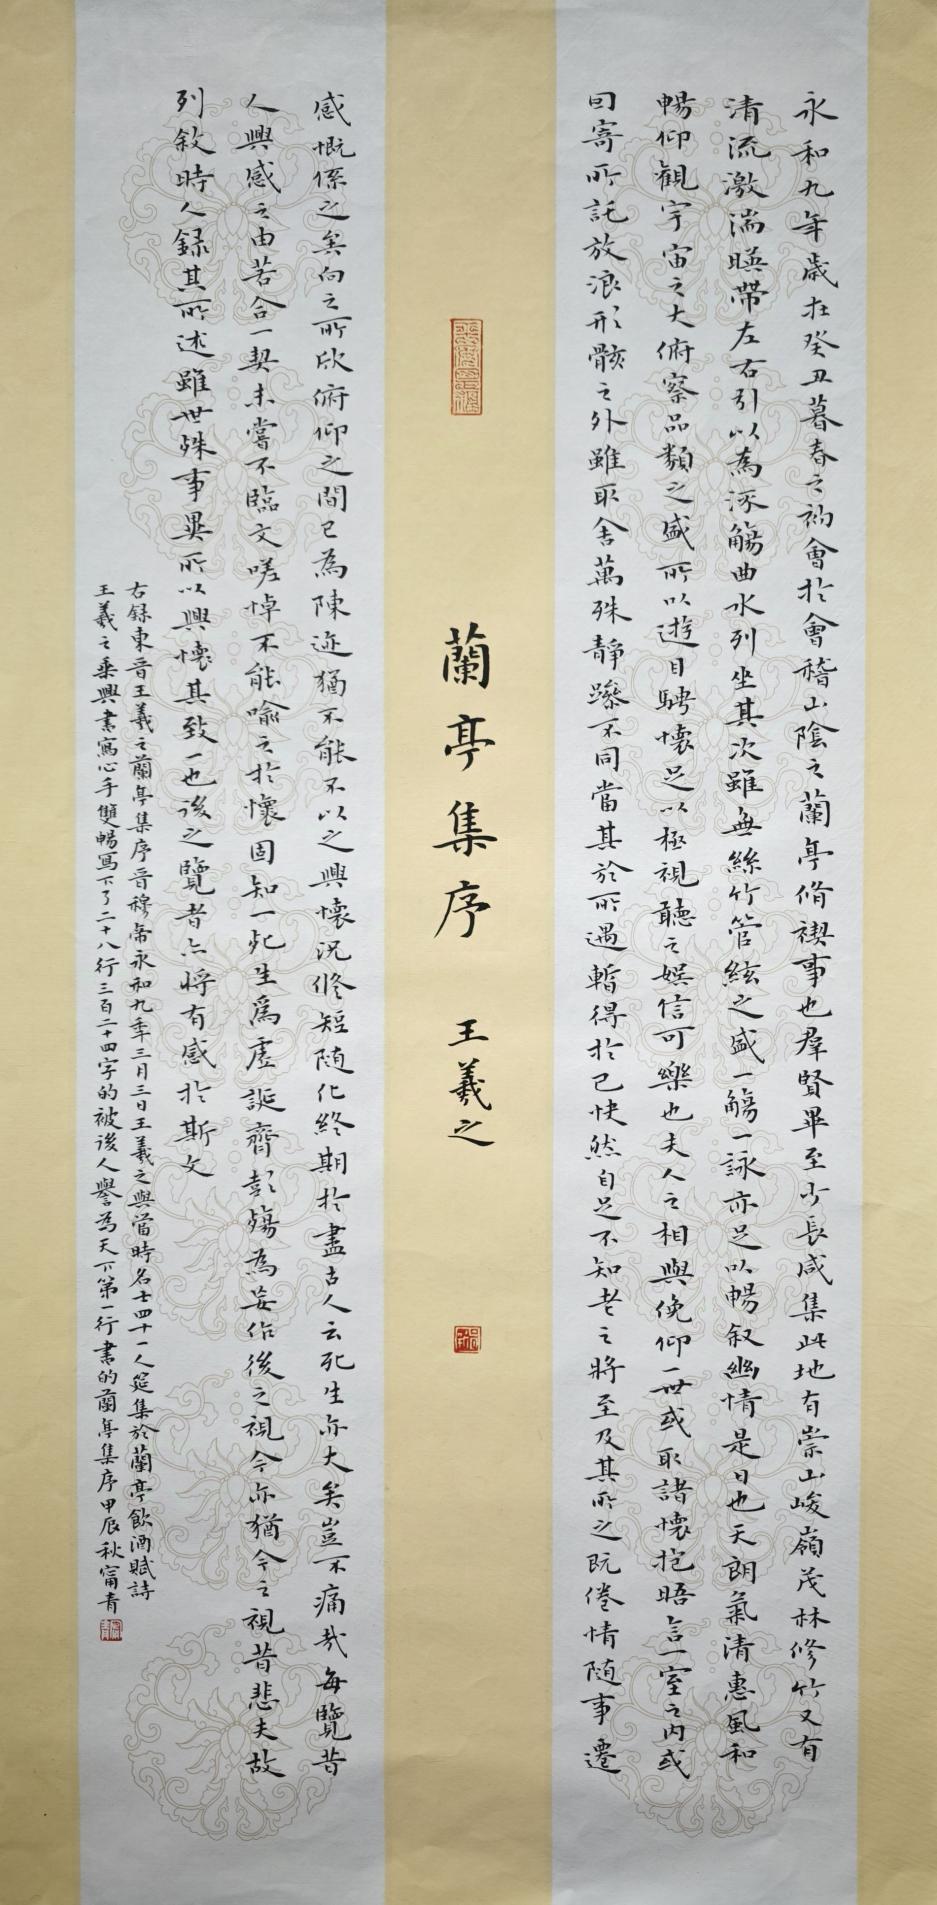 永和九年歲在癸丑暮春之初會於會稽山陰之蘭亭脩禊事也羣賢畢至少長咸集此地有崇山峻嶺茂林修竹又有
清流激湍暎帶左右引以為流觴曲水列坐其次雖無絲竹管絃之盛一觴一詠亦足以暢叙幽情是日也天朗氣清惠風和
暢仰觀宇宙之大俯察品類之盛所以遊目騁懷足以極視聽之娛信可樂也夫人之相與俛仰一世或取諸懷抱晤言一室之內或
因寄所託放浪形骸之外雖取舍萬殊靜躁不同當其於所遇暫得於己快然自足不知老之將至及其所之既倦情隨事遷
蘭亭集序 王羲之
感慨係之矣向之所欣俯仰之間已為陳迹猶不能不以之興懷況修短隨化終期於盡古人云死生亦大矣豈不痛哉每覽昔
人興感之由若合一契未嘗不臨文嗟悼不能喻之於懷固知一死生為虛誕齊彭殤為妄作後之視今亦猶今之視昔悲夫故
列敘時人錄其所述雖世殊事異所以興懷其致一也後之覽者亦將有感於斯文
右錄東晉王羲之蘭亭集序晉穆帝永和九年三月三日王羲之與當時名士四十一人筵集於蘭亭飲酒賦詩
王羲之乘興書寫心手雙暢寫下了二十八行三百二十四字的被後人譽為天下第一行書的蘭亭集序甲辰秋甯青